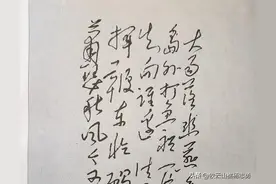 大雨落幽燕
岛外打鱼船一
知向谁边往
挥鞭东临碣
萧瑟秋风今又